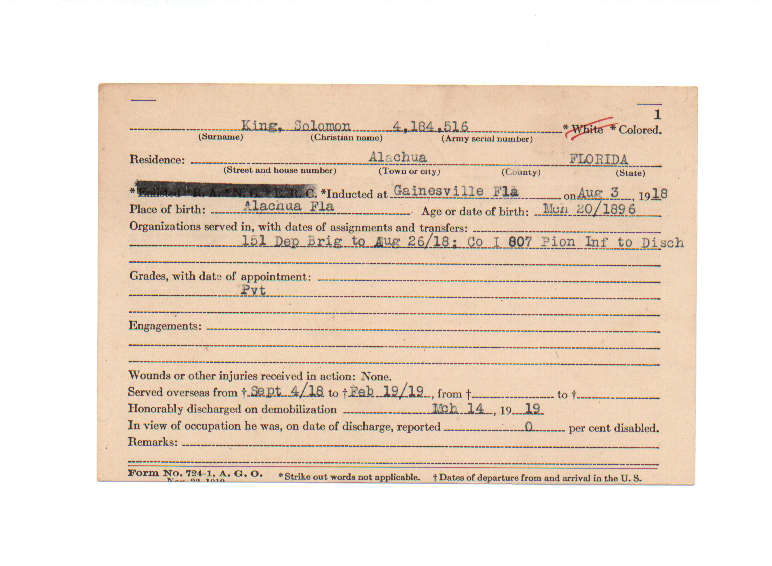 1
King, Solomon 4,184,516 * White * Colored.
(Surname) (Christian name) (Army serial number)
Residence: Alachua FLORIDA
(Street and house number) (Town or city) (County) (State)
* Enlisted * R. A. * N. G. * E. R. C. * Inducted at Gainesville Fla on Aug 3, 1918
Place of birth: Alachua Fla Age or date of birth: Mch 20/1896
Organizations served in, with dates of assignments and transfers:
151 Dep Brig to Aug 26/18; Co I 807 Pion Inf to Disch
Grades, with date of appointment:
Pvt
Engagements:
Wounds or other injuries received in action: None.
Served overseas from † Sept 4/18 to † Feb 19/19, from † to †
Honorably discharged on demobilization Mch 14, 19 19
In view of occupation he was, on date of discharge, reported 0 per cent disabled.
Remarks:
Form No. 724-1, A. G. O. * Strike out words not applicable. † Dates of departure from and arrival in the U. S.